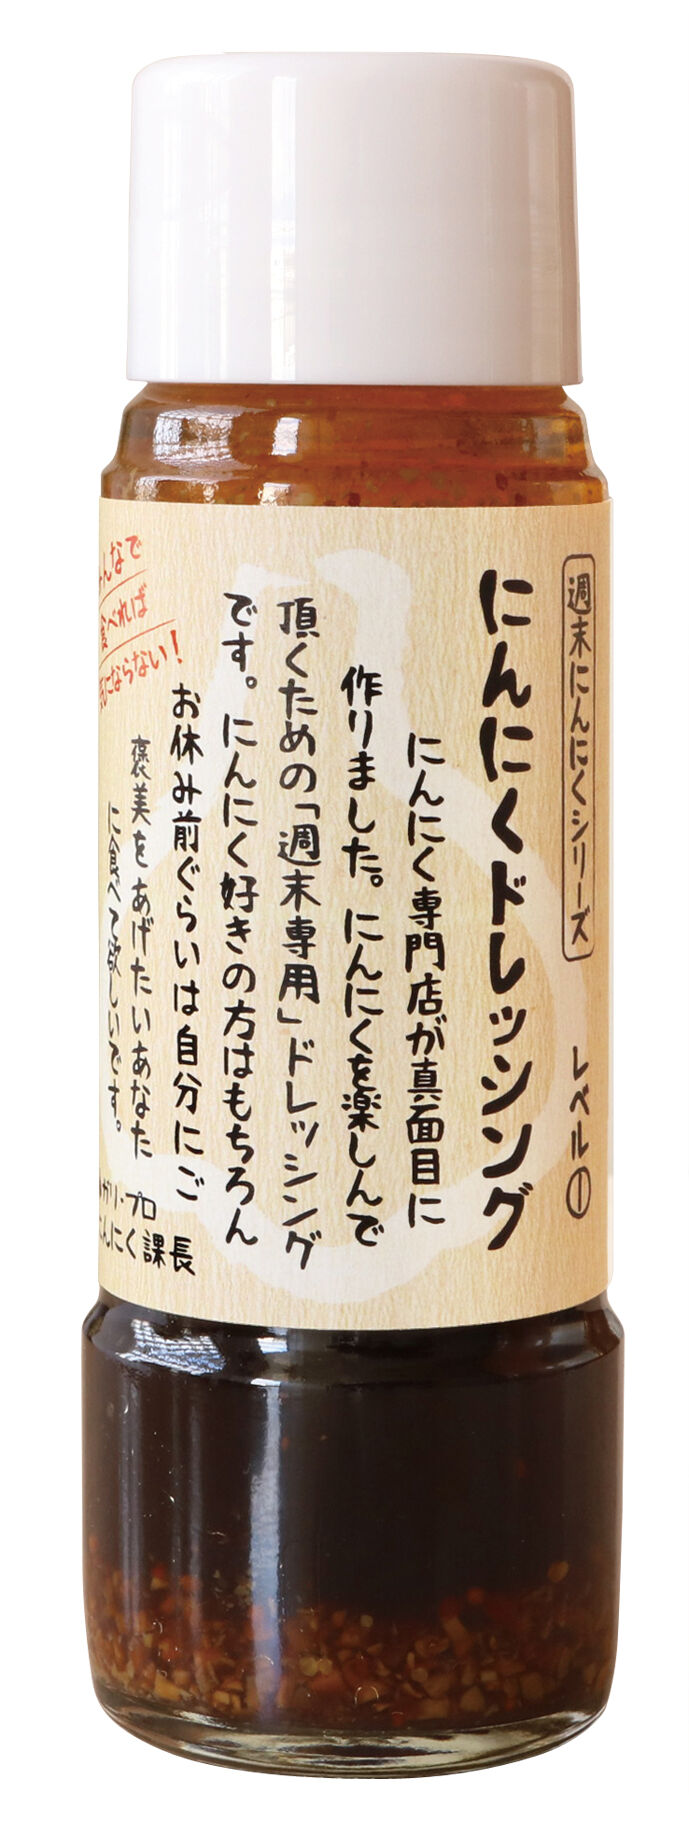 週末にんにくシリーズ レベル①
にんにくドレッシング
にんにく専門店が真面目に
作りました。にんにくを楽しんで
頂くための「週末専用」ドレッシング
です。にんにく好きの方はもちろん
お休み前ぐらいは自分にご
褒美をあげたいあなた
に食べて欲しいです。
ガリ・プロ
んにく課長
んなで
食べれば
気にならない!